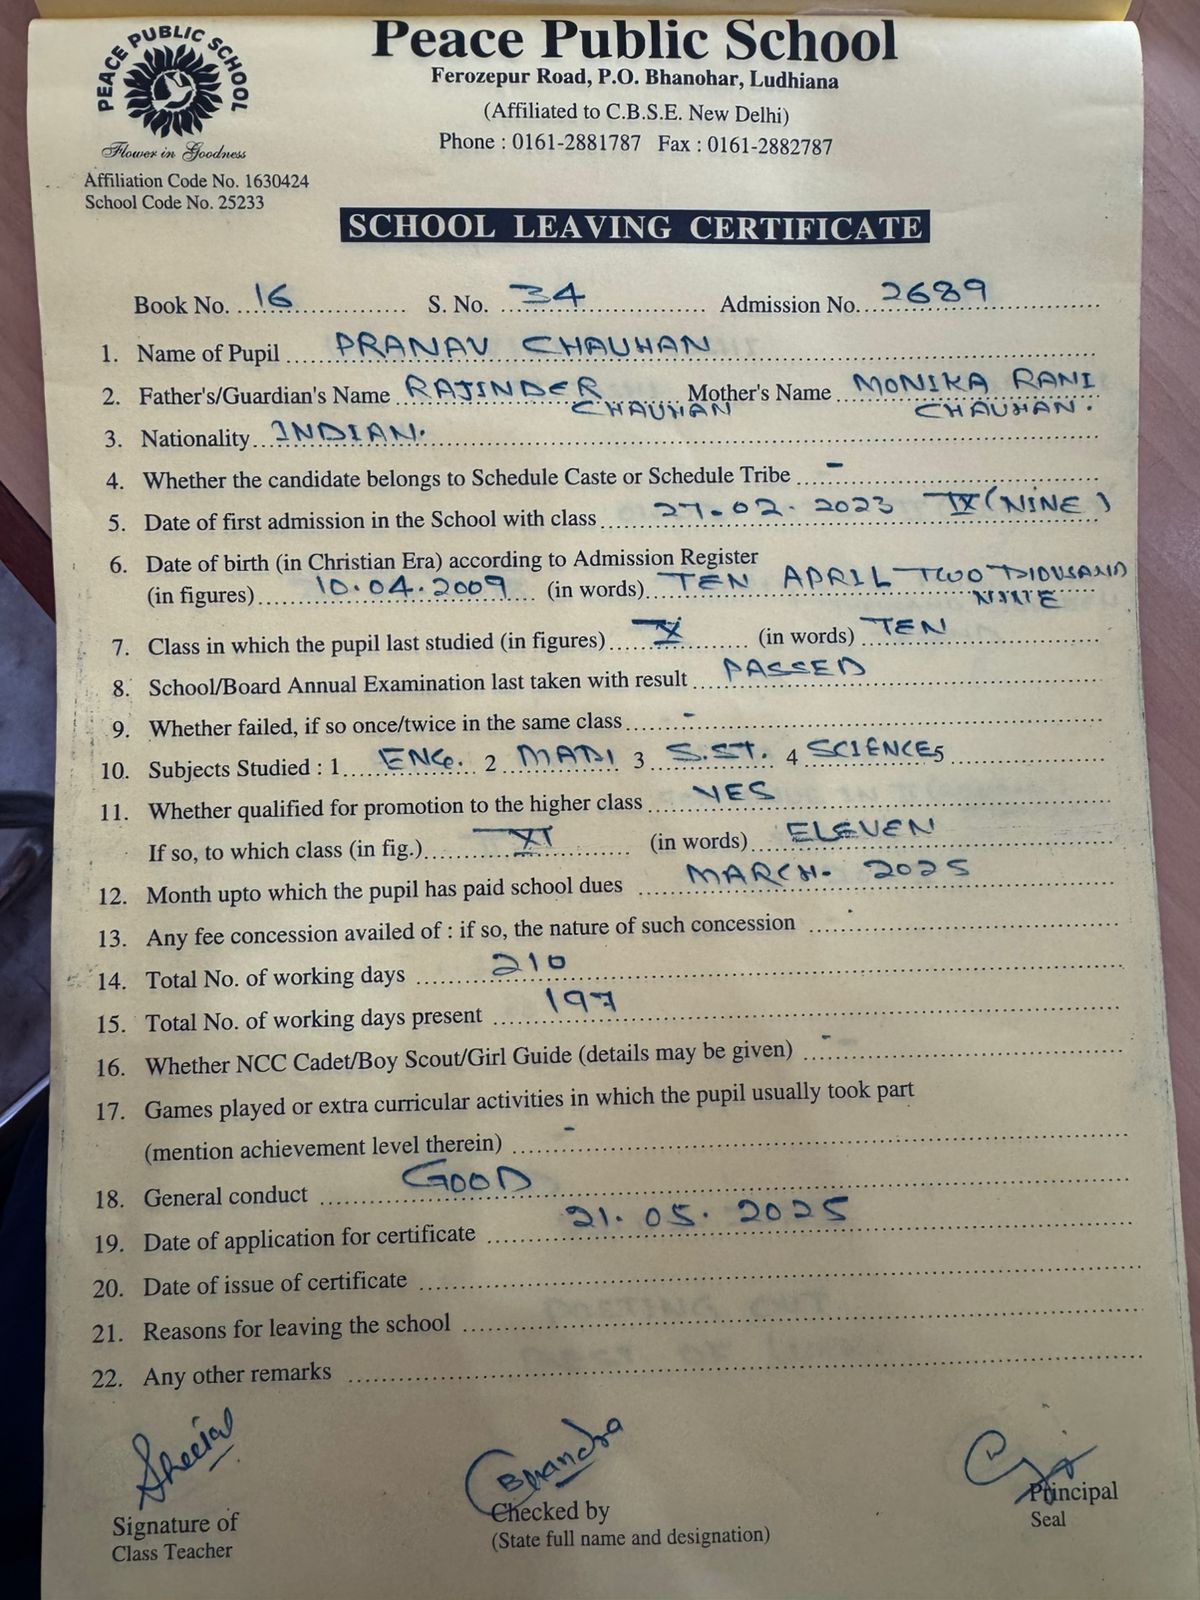 PEACE PUBLIC SCHOOL
Flower in Goodness
Affiliation Code No. 1630424
School Code No. 25233
Peace Public School
Ferozepur Road, P.O. Bhanohar, Ludhiana
(Affiliated to C.B.S.E. New Delhi)
Phone : 0161-2881787 Fax : 0161-2882787
SCHOOL LEAVING CERTIFICATE
Book No. 16 S. No. 34 Admission No. 2689
1. Name of Pupil PRANAV CHAUHAN
2. Father's/Guardian's Name RAJINDER CHAUHAN Mother's Name MONIKA RANI CHAUHAN.
3. Nationality INDIAN.
4. Whether the candidate belongs to Schedule Caste or Schedule Tribe -
5. Date of first admission in the School with class 27.02.2023 IX (NINE)
6. Date of birth (in Christian Era) according to Admission Register
(in figures) 10.04.2009 (in words) TEN APRIL TWO THOUSAND NINE
7. Class in which the pupil last studied (in figures) X (in words) TEN
8. School/Board Annual Examination last taken with result PASSED
9. Whether failed, if so once/twice in the same class -
10. Subjects Studied : 1 ENG. 2 3 S.ST. 4 SCIENCE 5
11. Whether qualified for promotion to the higher class YES
If so, to which class (in fig.) XI (in words) ELEVEN
12. Month upto which the pupil has paid school dues MARCH. 2025
13. Any fee concession availed of : if so, the nature of such concession
14. Total No. of working days 210
15. Total No. of working days present 197
16. Whether NCC Cadet/Boy Scout/Girl Guide (details may be given) -
17. Games played or extra curricular activities in which the pupil usually took part
(mention achievement level therein) -
18. General conduct GOOD
19. Date of application for certificate 21.05.2025
20. Date of issue of certificate
21. Reasons for leaving the school
22. Any other remarks
Bhandra
Signature of
Class Teacher
Checked by
(State full name and designation)
Principal
Seal